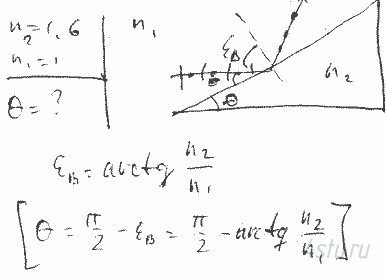 n₂ = 1,6
n₁ = 1
θ = ?
n₁
ε_B
n₂
θ
ε_B = arctg n₂/n₁
[θ = π/2 - ε_B = π/2 - arctg n₂/n₁]
4stu.ru